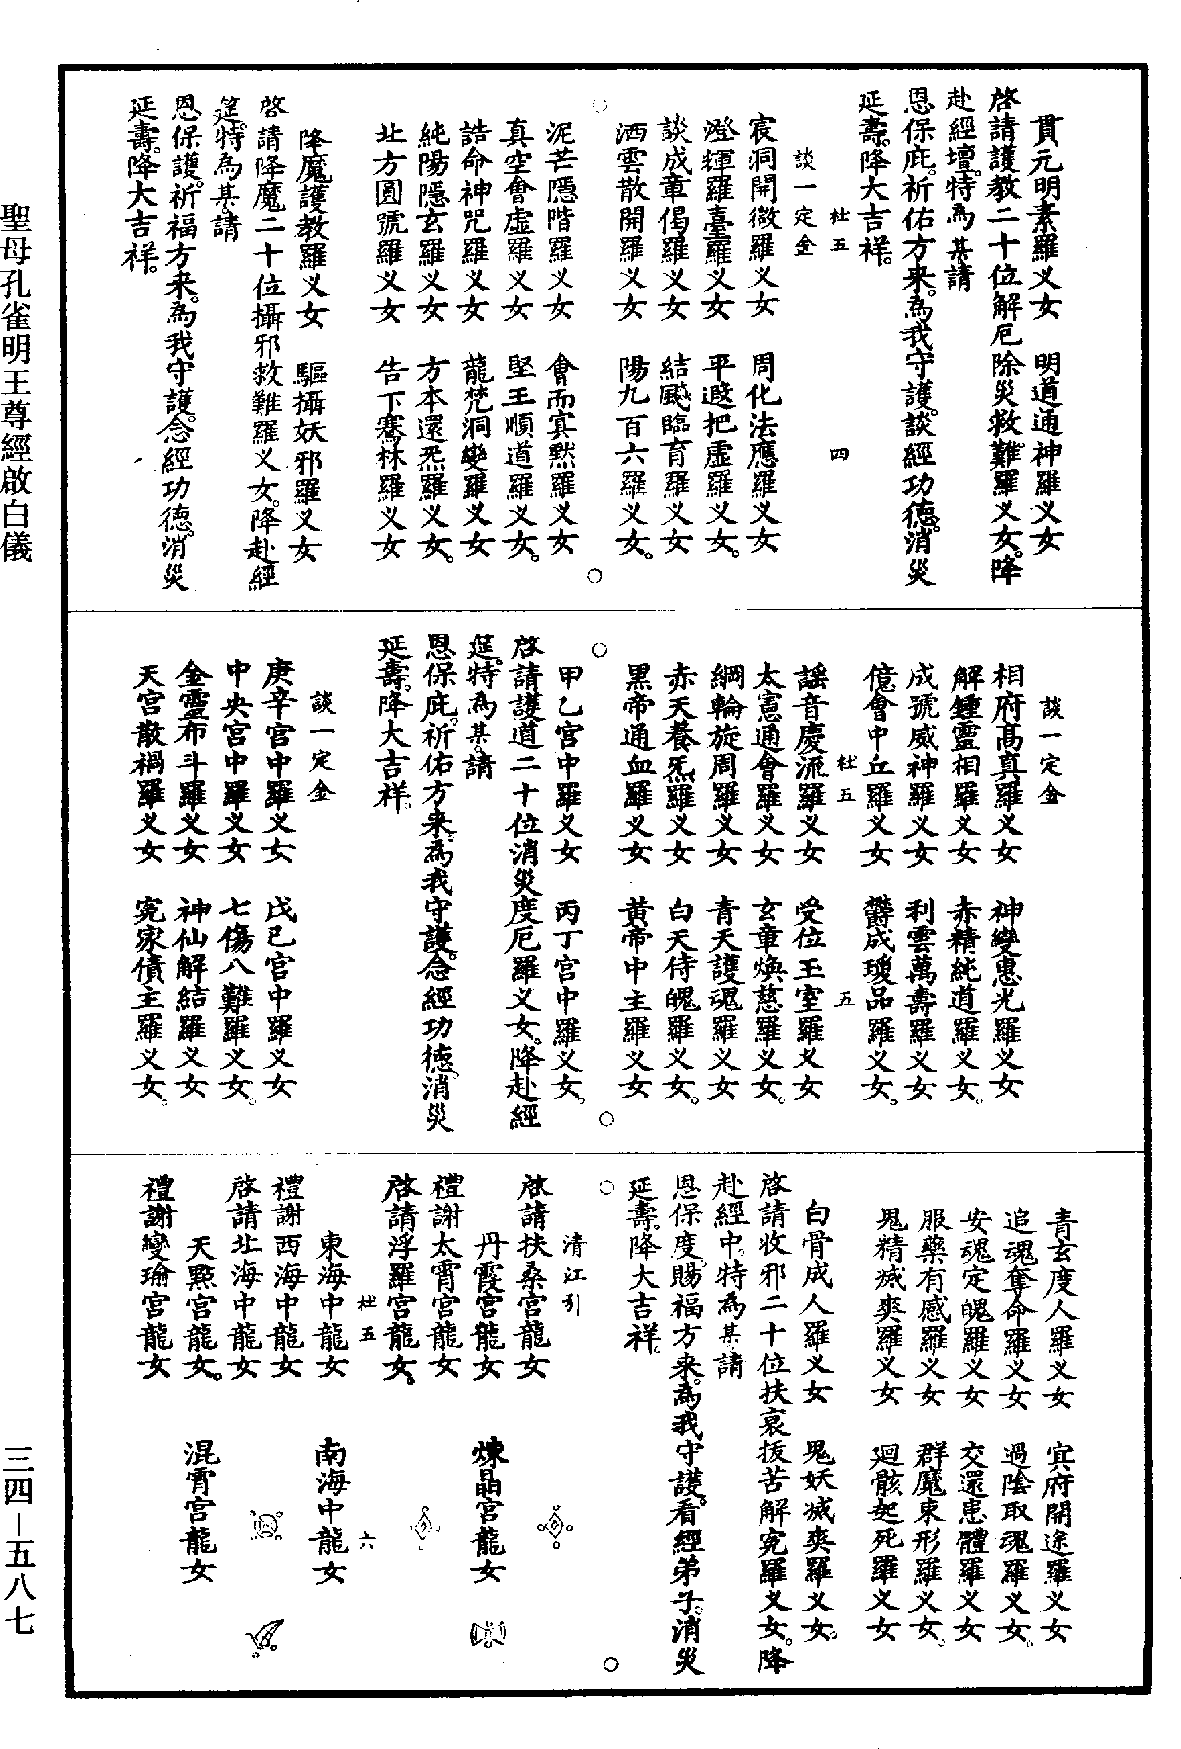 貫元明素羅义女　明道通神羅义女
啓請護教二十位解厄除災救難羅义女。降
赴經壇。特為某請
恩保庇。祈佑方来。為我守護。談經功德。消災
延壽。降大吉祥。
杜五　四
談一定金
㝠洞開微羅义女　周化法應羅义女
澄輝羅臺羅义女　平遐把虛羅义女
談成章偈羅义女　結飚臨育羅义女
洒雲散開羅义女　陽九百六羅义女。
泥芒隱階羅义女　會而㝠黙羅义女
真空會虛羅义女　堅王順道羅义女。
誥命神咒羅义女　龍梵洞變羅义女
純陽隱玄羅义女　方本還炁羅义女。
北方圓號羅义女　告下騫林羅义女
降魔護教羅义女　驅攝妖邪羅义女
啓請降魔二十位攝邪救難羅义女。降赴經
筵。特為某請
恩保護。祈福方来。為我守護。念經功德。消災
延壽。降大吉祥。
談一定金
相府高真羅义女　神變惠光羅义女
解鍾靈相羅义女　赤精純道羅义女。
成號威神羅义女　利雲萬壽羅义女
億會中丘羅义女　欝成瓊品羅义女。
杜五　五
謡音慶流羅义女　受位王室羅义女
太憲通會羅义女　玄章煥慈羅义女。
綱輪旋周羅义女　青天護魂羅义女
赤天養炁羅义女　白天侍魄羅义女。
黒帝通血羅义女　黄帝中主羅义女
甲乙宮中羅义女　丙丁宮中羅义女。
啓請護道二十位消災度厄羅义女。降赴經
筵。特為某請
恩保庇。祈佑方来。為我守護。念經功德。消災
延壽。降大吉祥。
談一定金
庚辛宮中羅义女　戊己宮中羅义女
中央宮中羅义女　七傷八難羅义女。
金靈布斗羅义女　神仙解結羅义女
天宮散禍羅义女　寃家債主羅义女。
青玄度人羅义女　㝠府開途羅义女
追魂奪命羅义女　過陰取魂羅义女。
安魂定魄羅义女　交還患體羅义女
服藥有感羅义女　群魔束形羅义女。
鬼精滅爽羅义女　廻骸起死羅义女
白骨成人羅义女　鬼妖滅爽羅义女。
啓請收邪二十位扶衰拔苦解寃羅义女。降
赴經中。特為某請
恩保度。賜福方来。為我守護。看經弟子。消災
延壽。降大吉祥。
清江引
啓請扶桑宮龍女
丹霞宮龍女　煉晶宮龍女
禮謝太霄宮龍女
啓請浮羅宮龍女。
杜五　六
東海中龍女　南海中龍女
禮謝西海中龍女
啓請北海中龍女
天㸃宮龍女。　混霄宮龍女
禮謝變瑜宮龍女
聖母孔雀明王尊經啟白儀
三四－五八七